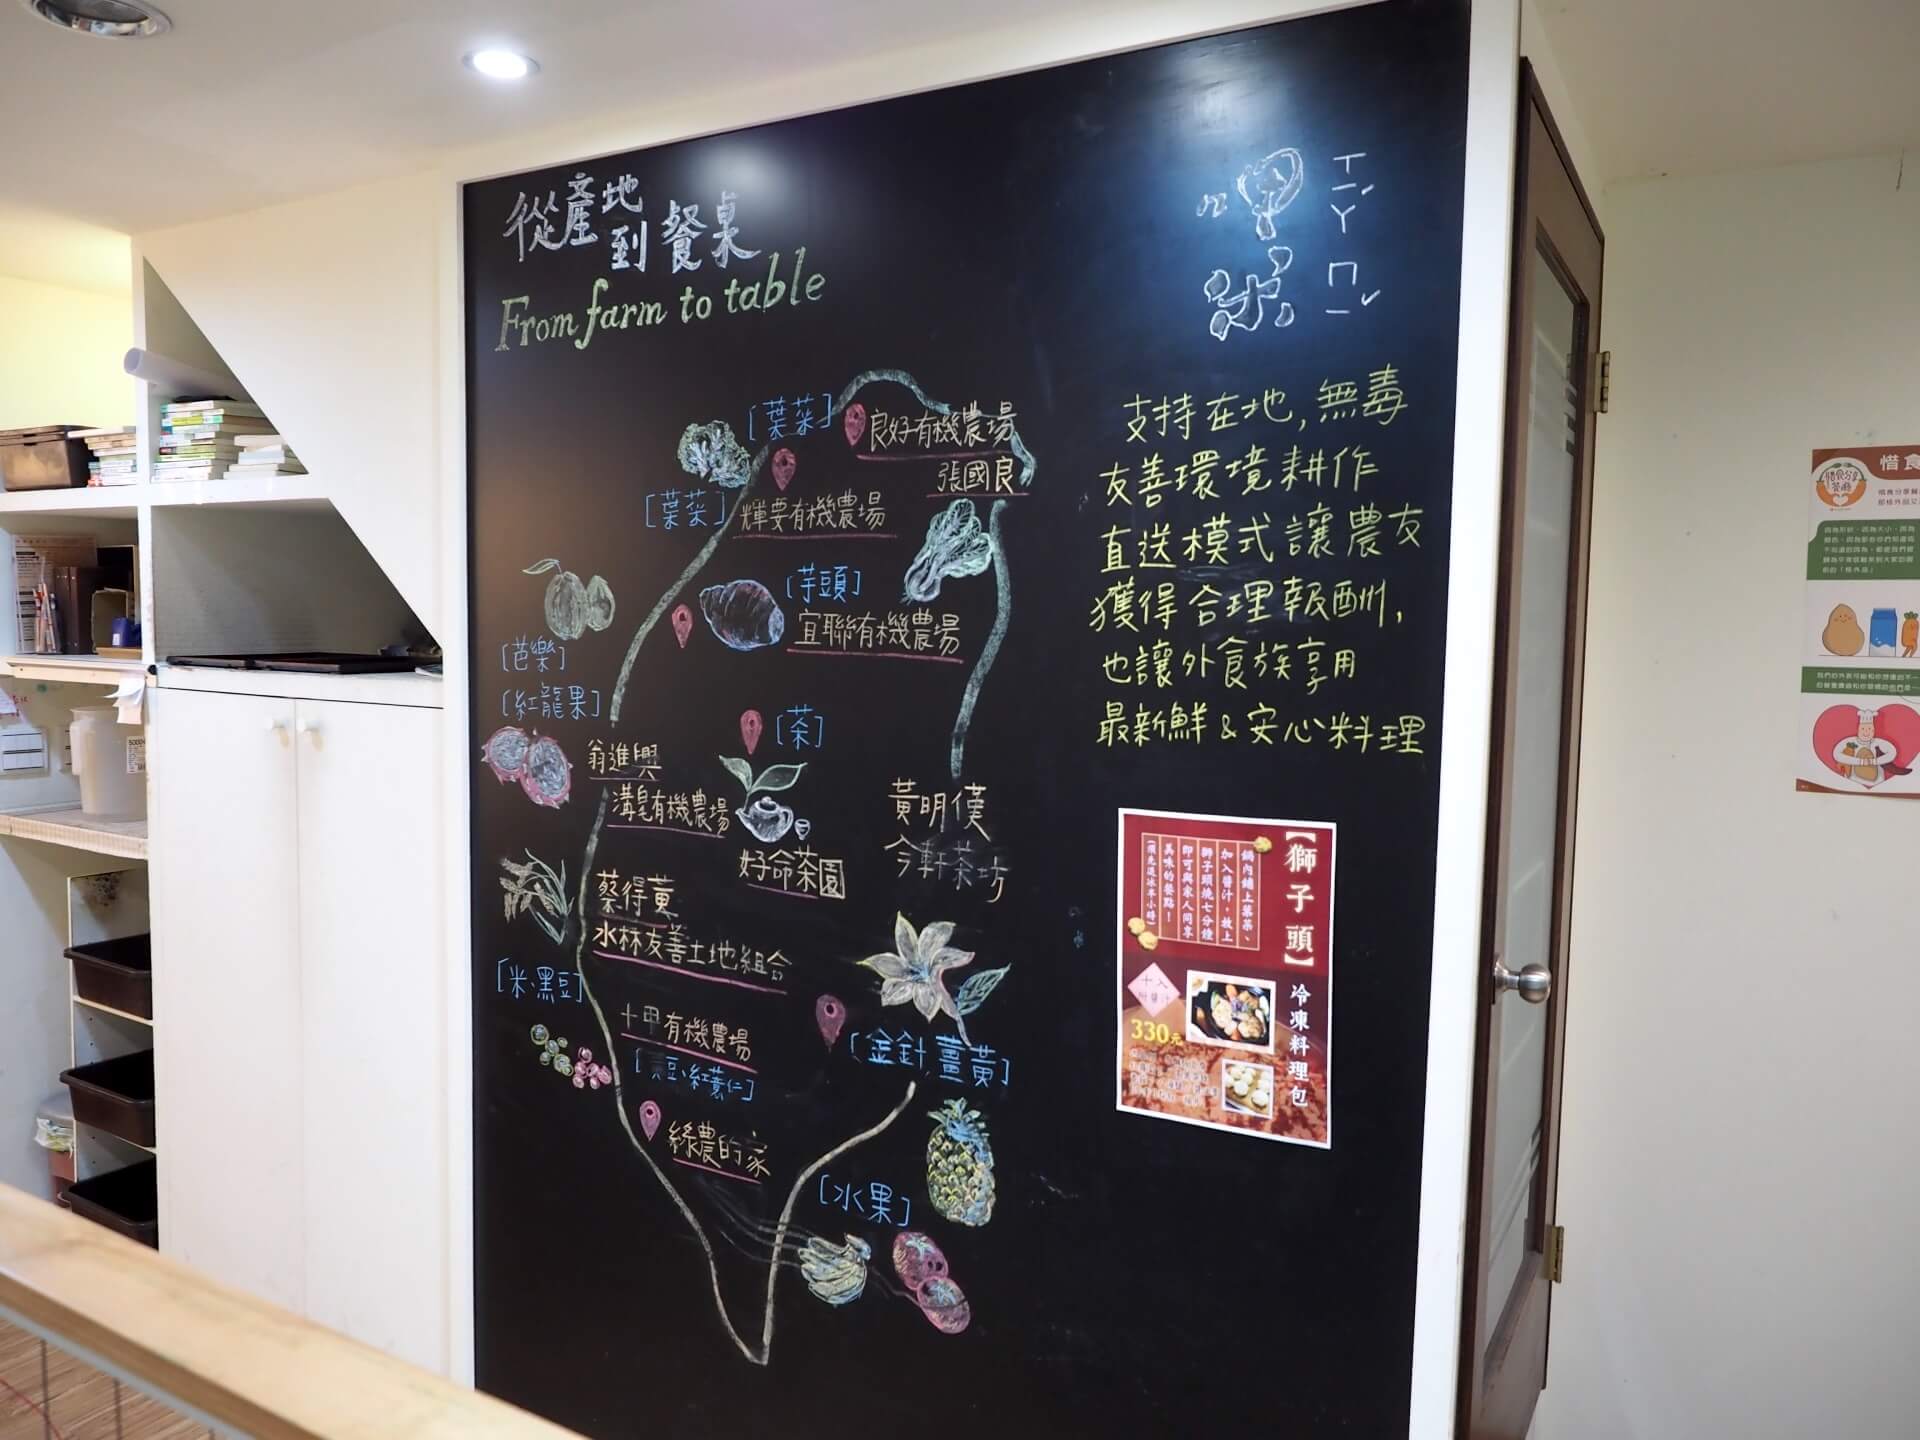 從產地
到餐桌
From farm to table
甲
ㄒㄧㄚˊ
ㄇㄧˇ
支持在地,無毒
友善環境耕作
直送模式讓農友
獲得合理報酬,
也讓外食族享用
最新鮮&安心料理
[葉菜]
良好有機農場
張國良
[葉菜]
輝要有機農場
[芋頭]
宜聯有機農場
[芭樂]
[紅龍果]
翁進興
溝皂有機農場
[茶]
好命茶園
黃明僅
今軒茶坊
蔡得黃
水林友善土地組合
[米.黑豆]
十甲有機農場
豆、紅薏仁]
[金針,薑黃]
綠農的家
[水果]
【獅子頭】
冷凍料理包
鍋內鋪上葉菜、
加入醬汁,放上
獅子頭燒七分鐘
即可與家人同享
美味的餐點!
(須先退冰半小時)
十入
附醬汁
330元
惜食
惜食分享
餐廳